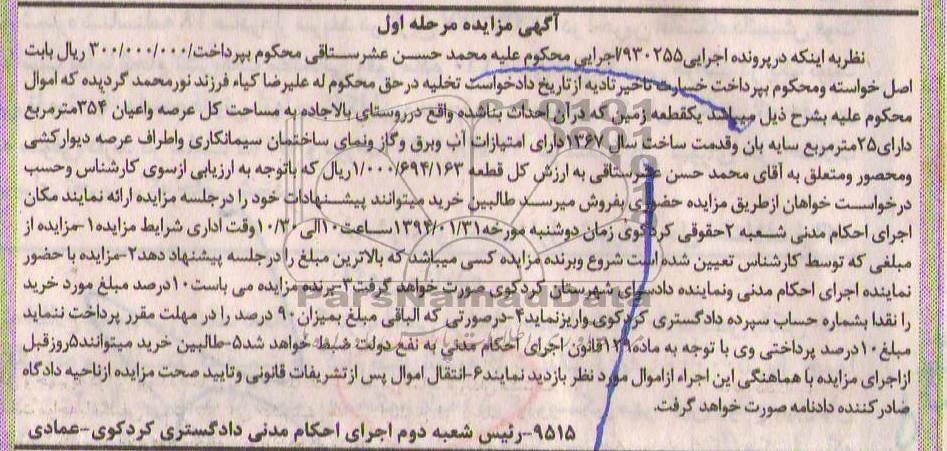 آگهی مزایده مرحله اول
نظربه اینکه درپرونده اجرایی۹۳۰۲۵۵/اجرایی محکوم علیه محمد حسن عشرستاقی محکوم بپرداخت/۳۰۰/۰۰۰/۰۰۰ ریال بابت
اصل خواسته ومحکوم بپرداخت خسارت تاخیرتادیه ازتاریخ دادخواست تخلیه درحق محکوم له علیرضا کیاء فرزند نورمحمد گردیده که اموال
محکوم علیه بشرح ذیل میباشد یکقطعه زمین که درآن احداث بناشده واقع درروستای بالاجاده به مساحت کل عرصه واعیان ۳۵۴مترمربع
دارای۲۵مترمربع سایه بان وقدمت ساخت سال ۱۳۶۷دارای امتیازات آب وبرق وگاز ونمای ساختمان سیمانکاری واطراف عرصه دیوارکشی
ومحصور ومتعلق به آقای محمد حسن عشرستاقی به ارزش کل قطعه ۱/۰۰۰/۶۹۴/۱۶۳ریال که باتوجه به ارزیابی ازسوی کارشناس وحسب
درخواست خواهان ازطریق مزایده حضوری بفروش میرسد طالبین خرید میتوانند پیشنهادات خود را درجلسه مزایده ارائه نمایند مکان
اجرای احکام مدنی شعبه ۲حقوقی کردکوی زمان دوشنبه مورخه۱۳۹۴/۰۱/۳۱ساعت۱۰الی ۱۰/۳۰وقت اداری شرایط مزایده۱-مزایده از
مبلغی که توسط کارشناس تعیین شده است شروع وبرنده مزایده کسی میباشد که بالاترین مبلغ را درجلسه پیشنهاد دهد۲-مزایده با حضور
نماینده اجرای احکام مدنی ونماینده دادسرای شهرستان کردکوی صورت خواهد گرفت۳-برنده مزایده می باست۱۰درصد مبلغ مورد خرید
را نقدا بشماره حساب سپرده دادگستری کردکوی واریزنماید۴-درصورتی که الباقی مبلغ بمیزان ۹۰ درصد را در مهلت مقرر پرداخت ننماید
مبلغ۱۰درصد پرداختی وی با توجه به ماده۱۲۹قانون اجرای احکام مدنی به نفع دولت ضبط خواهد شد۵-طالبین خرید میتوانند۵روزقبل
ازاجرای مزایده با هماهنگی این اجراء ازاموال مورد نظر بازدید نمایند۶-انتقال اموال پس ازتشریفات قانونی وتایید صحت مزایده ازناحیه دادگاه
صادرکننده دادنامه صورت خواهد گرفت.
۹۵۱۵-رئیس شعبه دوم اجرای احکام مدنی دادگستری کردکوی-عمادی
ParsNamadData